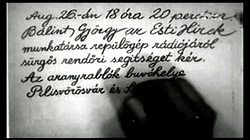 Aug. 26-án 18 óra 20 perckor
Bálint György az Esti Hírek
munkatársa repülőgép rádiójáról
sürgős rendőri segítséget kér.
Az aranyrablók búvóhelye
Pilisvörösvár és